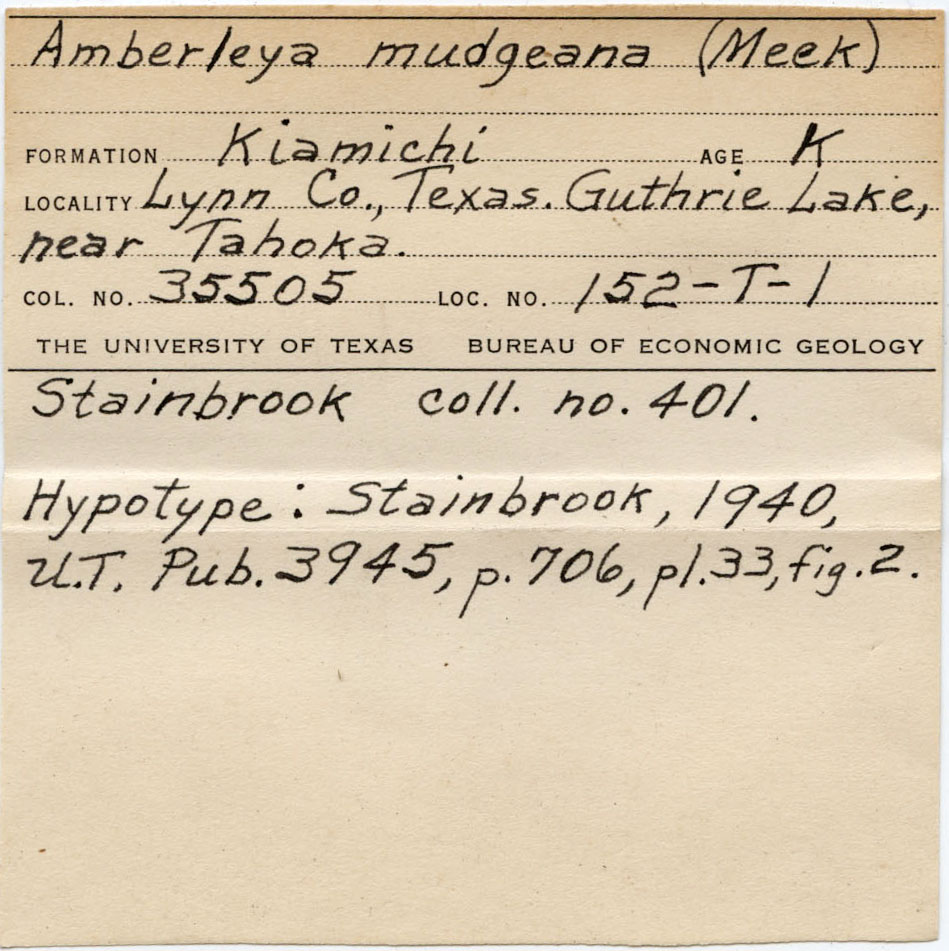 Amberleya mudgeana (Meek)
FORMATION Kiamichi AGE K
LOCALITY Lynn Co., Texas. Guthrie Lake,
near Tahoka.
COL. NO. 35505 LOC. NO. 152-T-1
THE UNIVERSITY OF TEXAS BUREAU OF ECONOMIC GEOLOGY
Stainbrook coll. no. 401.
Hypotype: Stainbrook, 1940,
U.T. Pub. 3945, p. 706, pl. 33, fig. 2.